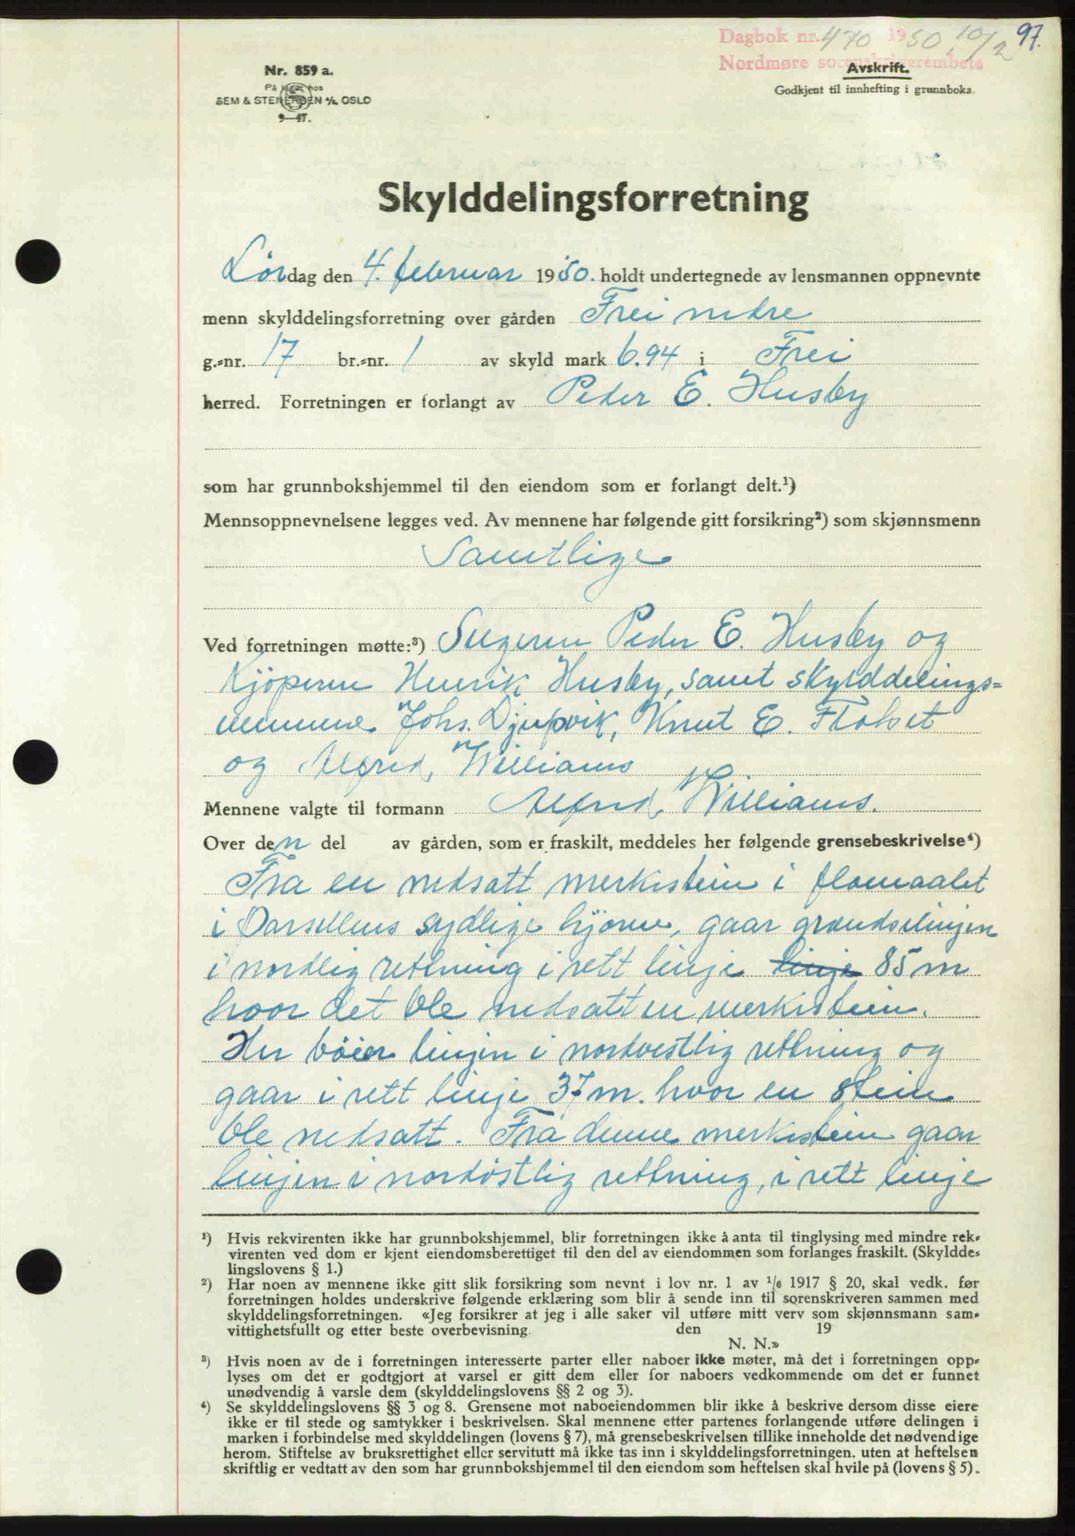 Dagbok nr. 470 1950 10/2 97.
Nordmøre sorenskriverembete
Nr. 859 a.
På lager hos
SEM & STENERSEN A/S, OSLO
9—47.
Avskrift.
Godkjent til innhefting i grunnboka.
Skylddelingsforretning
Lørdag den 4. februar 1950. holdt undertegnede av lensmannen oppnevnte
menn skylddelingsforretning over gården Frei nedre
g.-nr. 17 br.-nr. 1 av skyld mark 6.94 i Frei
herred. Forretningen er forlangt av Peder E. Husby
som har grunnbokshjemmel til den eiendom som er forlangt delt.¹)
Mennsoppnevnelsene legges ved. Av mennene har følgende gitt forsikring²) som skjønnsmenn
Samtlige
Ved forretningen møtte:³) Sælgeren Peder E. Husby og
Kjöperen Henrik Husby, samt skylddelings=
mennene Johs. Djupvik, Knut E. Flatset
og Alfred Williams
Mennene valgte til formann Alfred Williams.
Over den del av gården, som er fraskilt, meddeles her følgende grensebeskrivelse⁴)
Fra en nedsatt merkestein i flomaalet
i Parsellens sydlige hjörne, gaar grændselinjen
i nordlig retning i rett linje linje 85 m
hvor det ble nedsatt en merkestein.
Her böier linjen i nordvestlig retning og
gaar i rett linje 37 m. hvor en stein
ble nedsatt. Fra denne merkestein gaar
linjen i nordöstlig retning, i rett linje
¹) Hvis rekvirenten ikke har grunnbokshjemmel, blir forretningen ikke å anta til tinglysing med mindre rek-
virenten ved dom er kjent eiendomsberettiget til den del av eiendommen som forlanges fraskilt. (Skyldde-
lingslovens § 1.)
²) Har noen av mennene ikke gitt slik forsikring som nevnt i lov nr. 1 av ¹/₆ 1917 § 20, skal vedk. før
forretningen holdes underskrive følgende erklæring som blir å sende inn til sorenskriveren sammen med
skylddelingsforretningen. «Jeg forsikrer at jeg i alle saker vil utføre mitt verv som skjønnsmann sam-
vittighetsfullt og etter beste overbevisning. den 19
N. N.»
³) Hvis noen av de i forretningen interesserte parter eller naboer ikke møter, må det i forretningen opp-
lyses om det er godtgjort at varsel er gitt dem eller for naboers vedkommende om det er funnet
unødvendig å varsle dem (skylddelingslovens §§ 2 og 3).
⁴) Se skylddelingslovens §§ 3 og 8. Grensene mot naboeiendommen blir ikke å beskrive dersom disse eiere
ikke er til stede og samtykker i beskrivelsen. Skal mennene etter partenes forlangende utføre delingen i
marken i forbindelse med skylddelingen (lovens § 7), må grensebeskrivelsen tillike inneholde det nødvendige
herom. Stiftelse av bruksrettighet eller servitutt må ikke tas inn i skylddelingsforretningen, uten at heftelsen
skriftlig er vedtatt av den som har grunnbokshjemmel til den eiendom som heftelsen skal hvile på (lovens § 5).